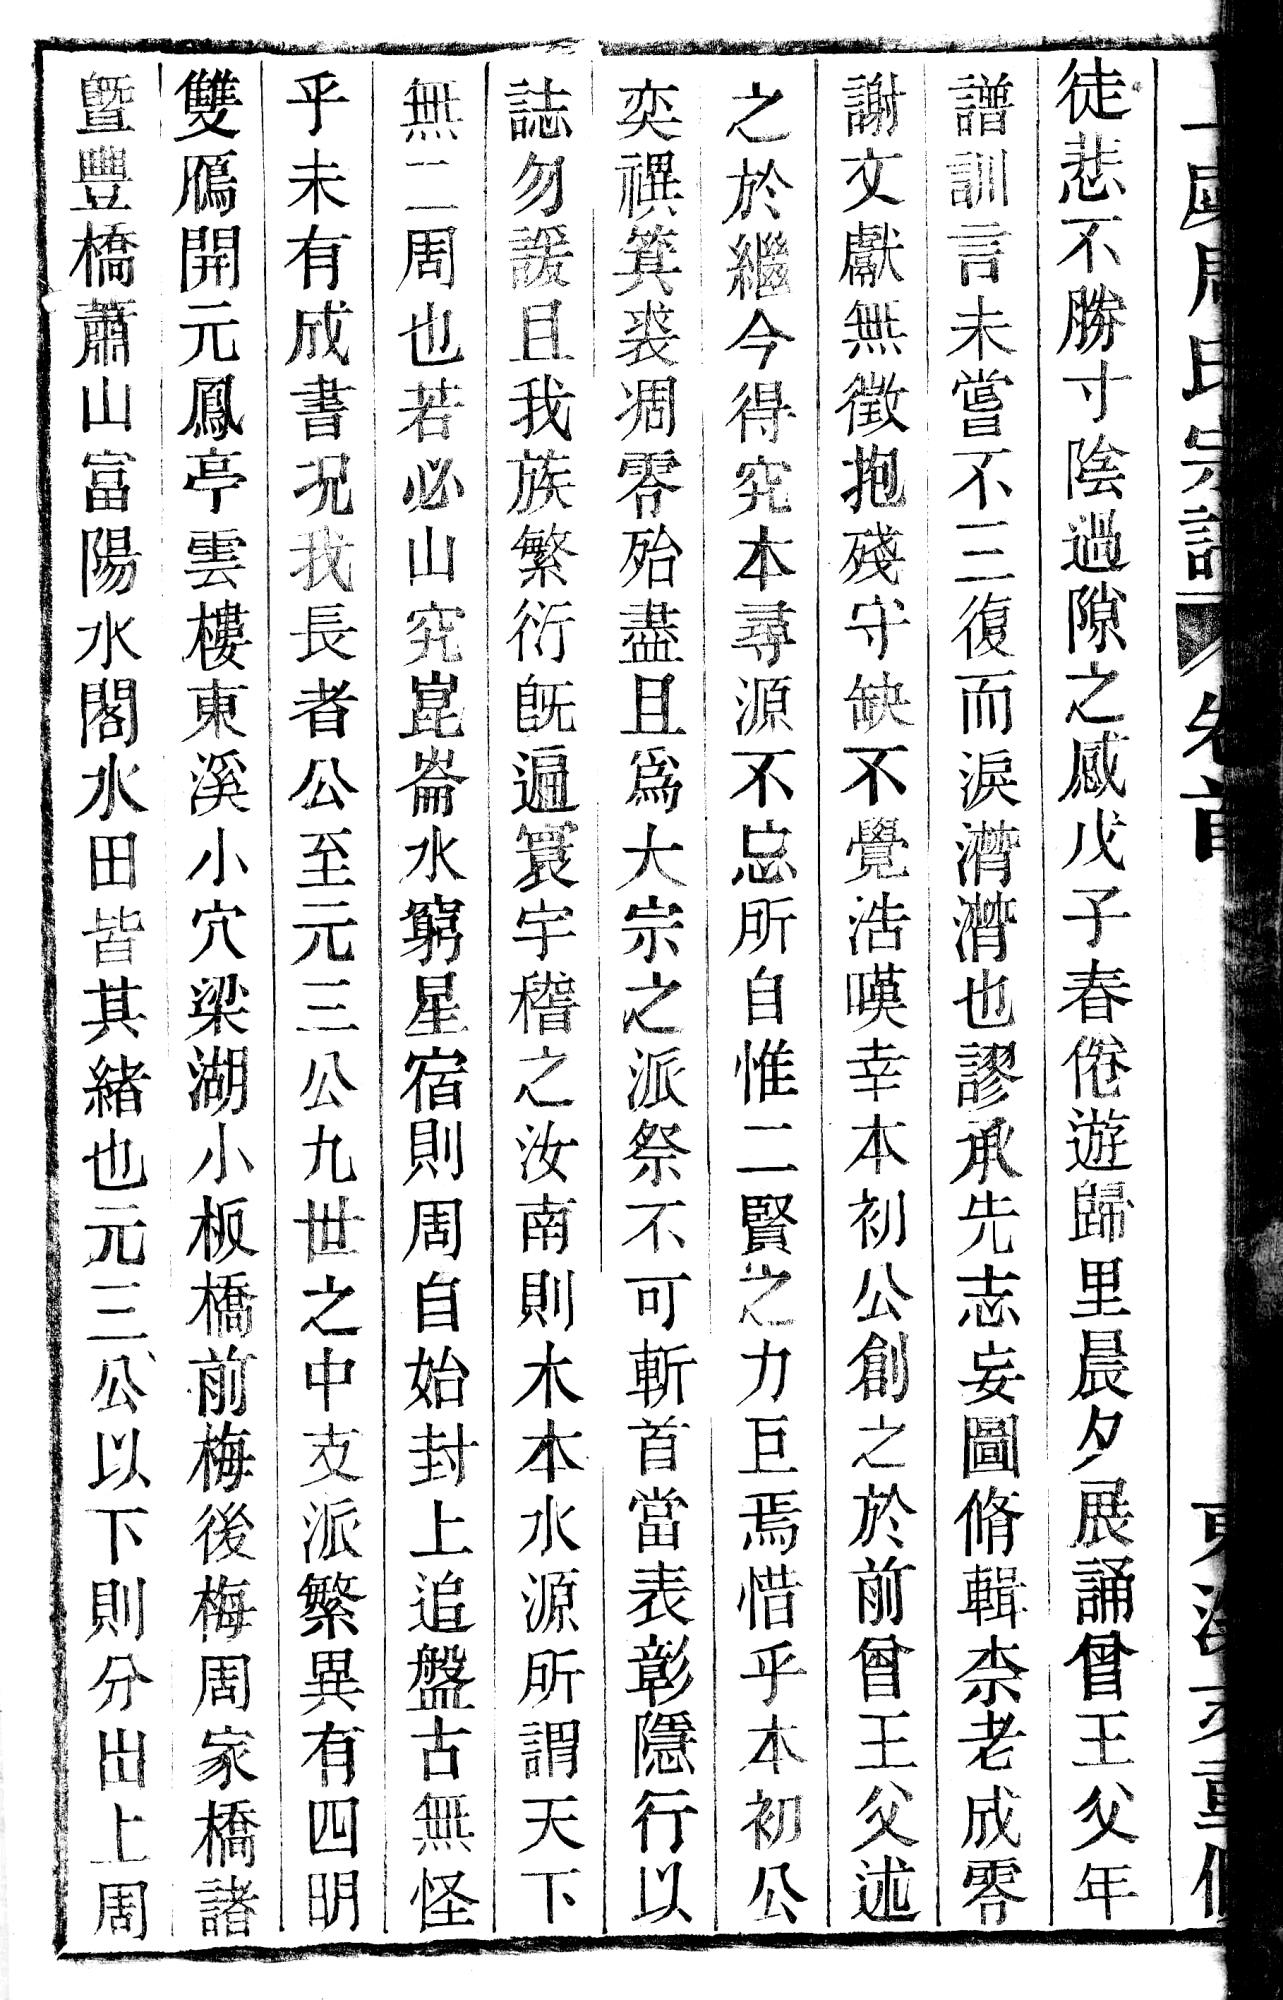 周氏宗譜 卷首
徒悲不勝寸陰過隙之感戊子春倦遊歸里晨夕展誦曾王父年
譜訓言未嘗不三復而淚潸潸也謬承先志妄圖脩輯柰老成零
謝文獻無徵抱殘守缺不覺浩嘆幸本初公創之於前曾王父述
之於繼今得究本尋源不忘所自惟二賢之力巨焉惜乎本初公
奕禩箕裘凋零殆盡且爲大宗之派祭不可斬首當表彰隱行以
誌勿諼且我族繁衍旣遍寰宇稽之汝南則木本水源所謂天下
無二周也若必山究崑崙水窮星宿則周自始封上追盤古無怪
乎未有成書况我長者公至元三公九世之中支派繁異有四明
雙鴈開元鳳亭雲樓東溪小穴梁湖小板橋前梅後梅周家橋諸
曁豐橋蕭山富陽水閣水田皆其緒也元三公以下則分出上周